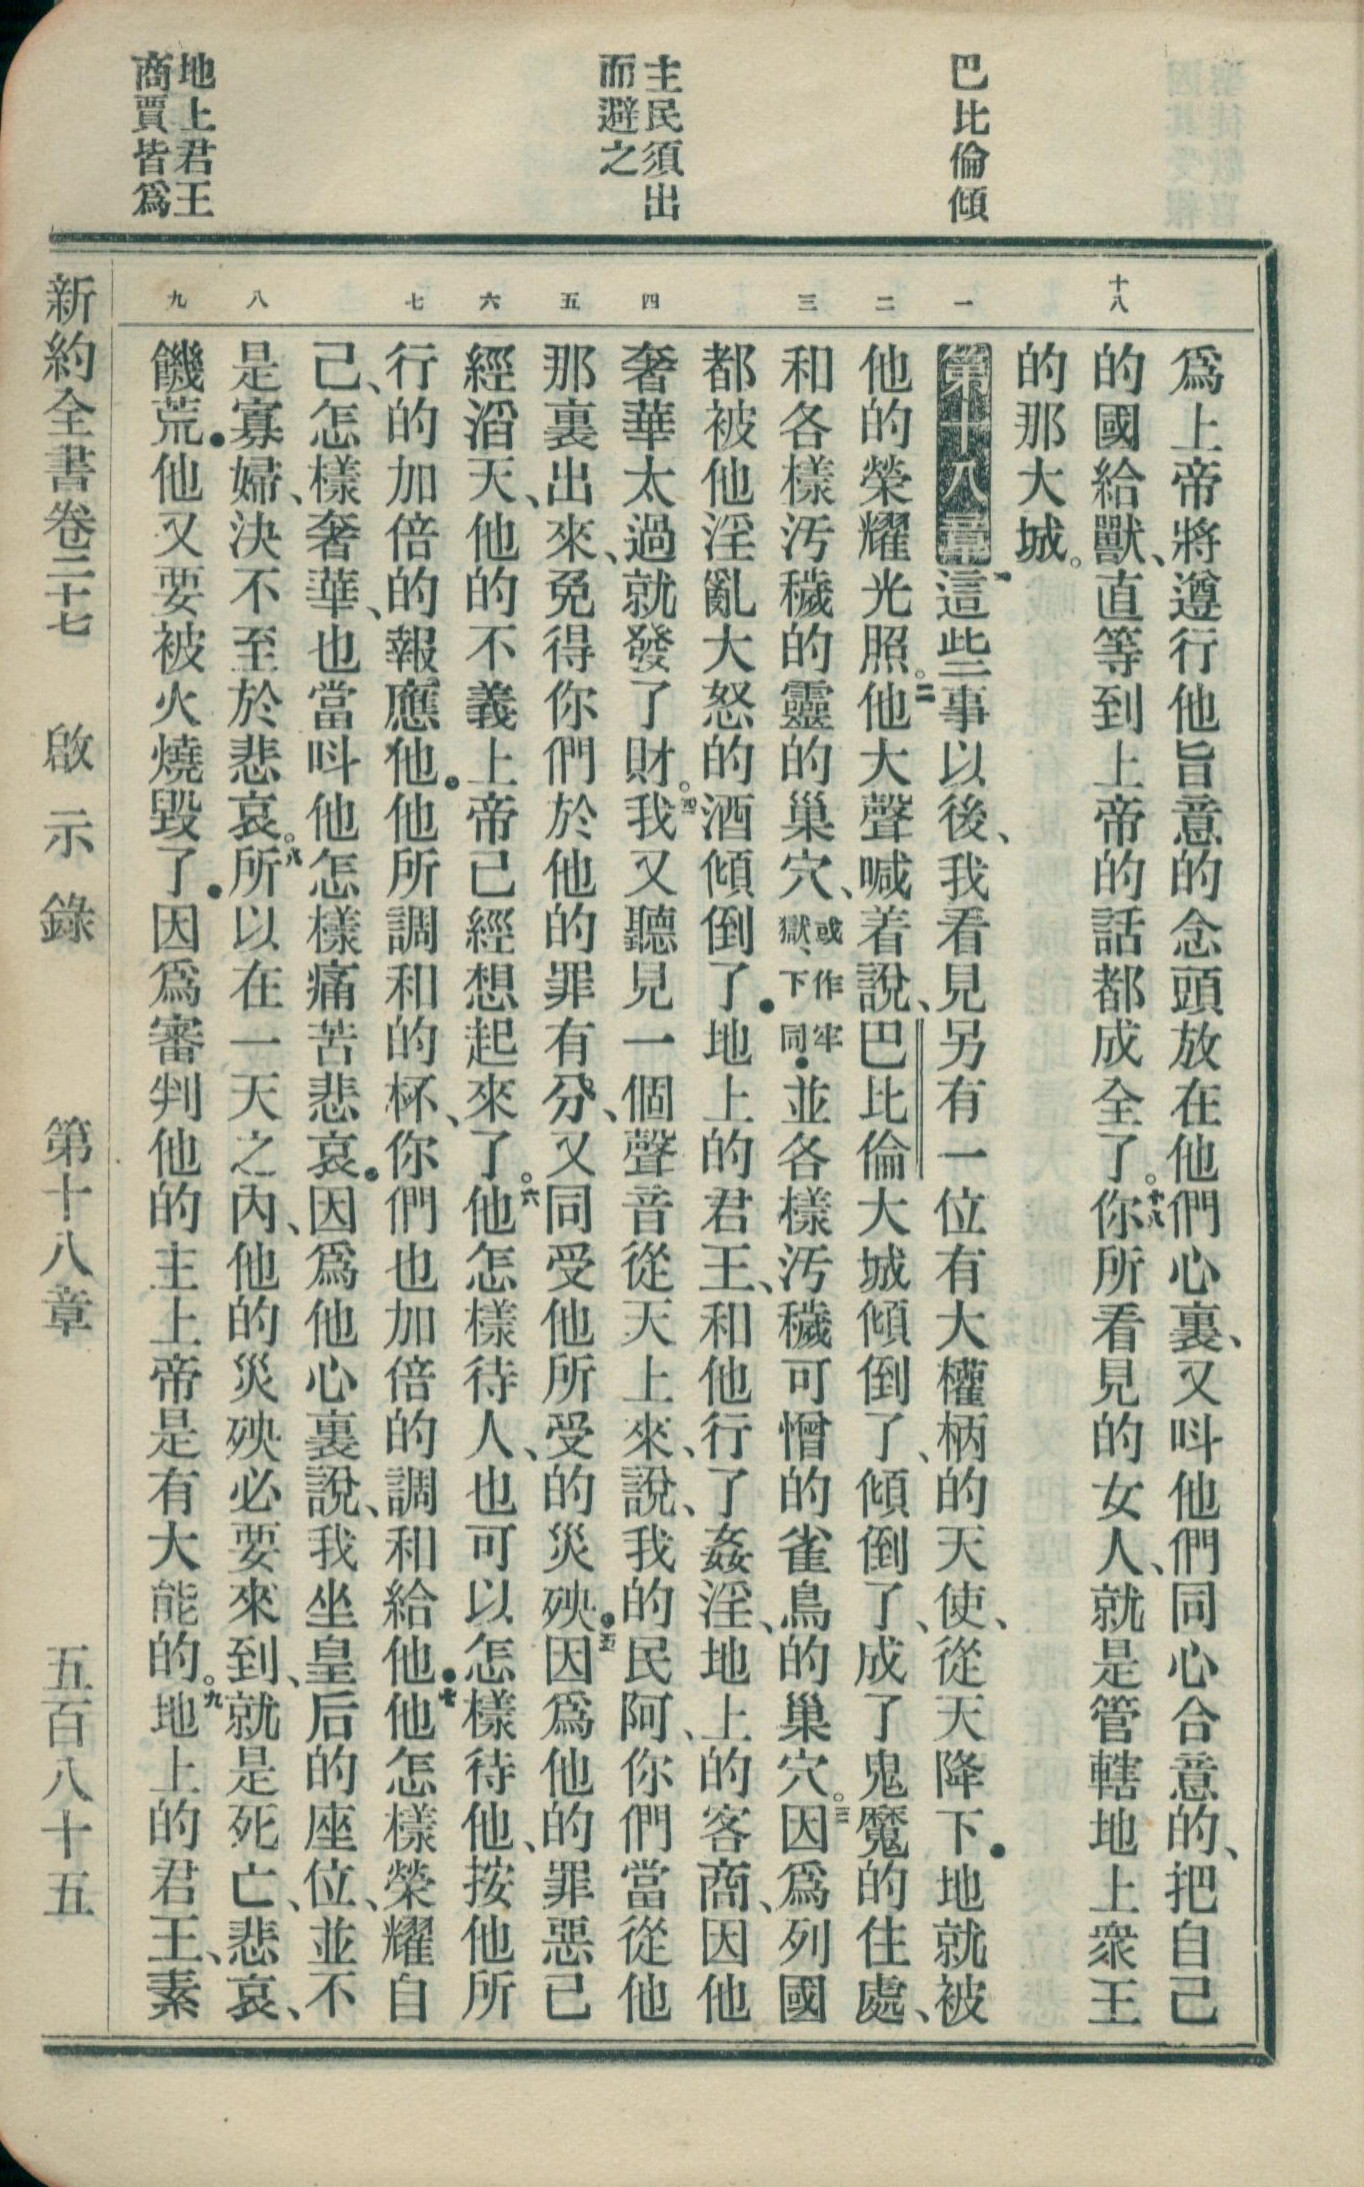 巴比倫傾
主民須出
而避之
地上君王
商賈皆爲
十八
一
二
三
四
五
六
七
八
九
爲上帝將遵行他旨意的念頭放在他們心裏、又呌他們同心合意的、把自己
的國給獸、直等到上帝的話都成全了。十八你所看見的女人、就是管轄地上衆王
的那大城。
第十八章一這些事以後、我看見另有一位有大權柄的天使、從天降下．地就被
他的榮耀光照。二他大聲喊着說、巴比倫大城傾倒了、傾倒了、成了鬼魔的住處、
和各樣汚穢的靈的巢穴、或作牢獄、下同．並各樣汚穢可憎的雀鳥的巢穴。三因爲列國
都被他淫亂大怒的酒傾倒了．地上的君王、和他行了姦淫、地上的客商、因他
奢華太過就發了財。四我又聽見一個聲音從天上來、說、我的民阿、你們當從他
那裏出來、免得你們於他的罪有分、又同受他所受的災殃．五因爲他的罪惡已
經滔天、他的不義上帝已經想起來了。六他怎樣待人、也可以怎樣待他、按他所
行的加倍的報應他．他所調和的杯、你們也加倍的調和給他．七他怎樣榮耀自
己、怎樣奢華、也當呌他怎樣痛苦悲哀．因爲他心裏說、我坐皇后的座位、並不
是寡婦、決不至於悲哀。八所以在一天之內、他的災殃必要來到、就是死亡、悲哀、
饑荒．他又要被火燒毀了．因爲審判他的主上帝是有大能的。九地上的君王、素
新約全書卷二十七　啟示錄　第十八章　五百八十五